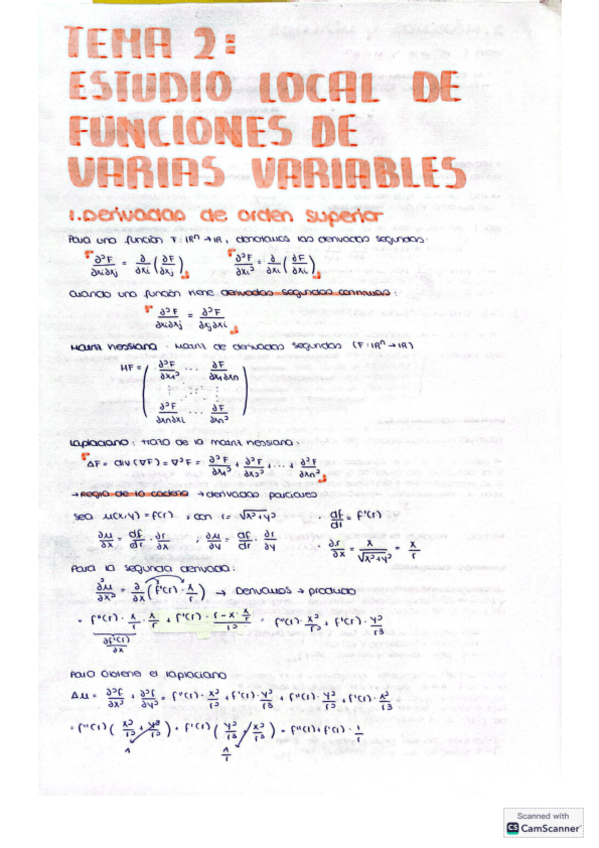 TEMA 2:
ESTUDIO LOCAL DE
FUNCIONES DE
VARIAS VARIABLES
1. Derivadas de orden superior
Para una función F: ℝⁿ → ℝ, denotamos las derivadas segundas:
∂²F/∂xi∂xj = ∂/∂xi (∂F/∂xj)    ∂²F/∂xi² = ∂/∂xi (∂F/∂xi)
Cuando una función tiene derivadas segundas continuas:
∂²F/∂xi∂xj = ∂²F/∂xj∂xi
Matriz Hessiana: Matriz de derivadas segundas (F: ℝⁿ → ℝ)
HF = ( ∂²F/∂x1² ... ∂F/∂x1∂xn
∂²F/∂xn∂x1 ... ∂F/∂xn² )
Laplaciano: traza de la matriz hessiana:
ΔF = div(∇F) = ∇²F = ∂²F/∂x1² + ∂²F/∂x2² + ... + ∂²F/∂xn²
→ Regla de la cadena → derivadas parciales
Sea μ(x,y) = f(r), con r = √x²+y²    · df/dr = f'(r)
∂μ/∂x = df/dr · ∂r/∂x ; ∂μ/∂y = df/dr · ∂r/∂y    · ∂r/∂x = x/√x²+y² = x/r
Para la segunda derivada:
∂²μ/∂x² = ∂/∂x (f'(r) · x/r) → Derivamos → producto
= f''(r) · x/r · x/r + f'(r) · r-x·x/r / r² = f''(r) · x²/r² + f'(r) · y²/r³
∂f'(r)/∂x
Para obtener el laplaciano
Δμ = ∂²f/∂x² + ∂²f/∂y² = f''(r) · x²/r² + f'(r) · y²/r³ + f''(r) · y²/r² + f'(r) · x²/r³
= f''(r) (x²/r² + y²/r²) + f'(r) (y²/r³ + x²/r³) = f''(r) + f'(r) · 1/r
1    1/r
Scanned with
CS CamScanner